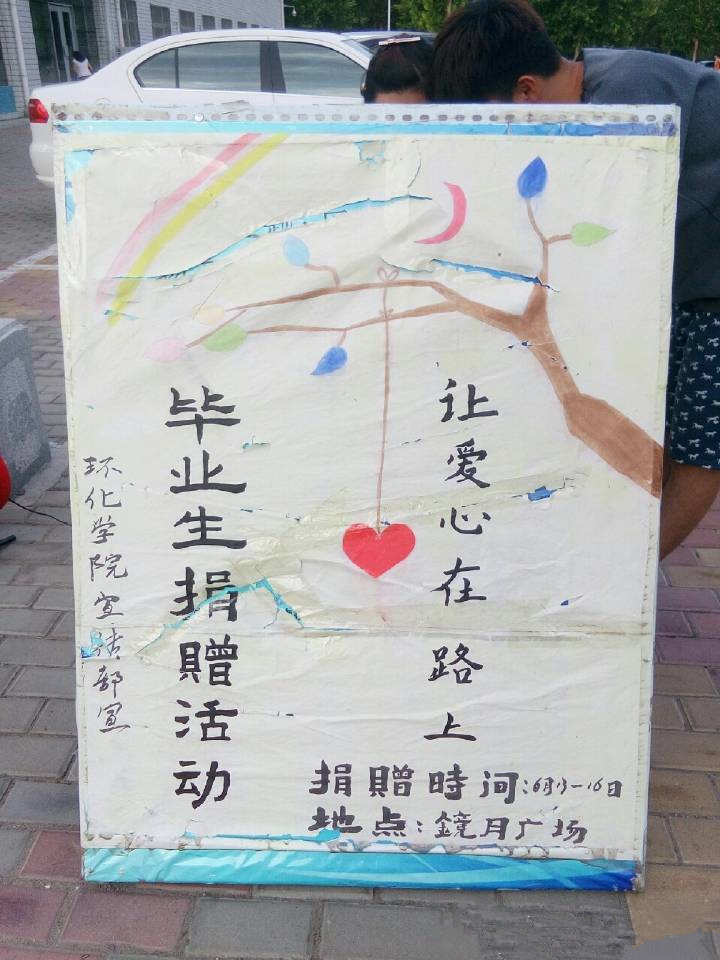 让爱心在路上
毕业生捐赠活动
环化学院宣传部宣
捐赠時间:6月13-16日
地点:鏡月广场